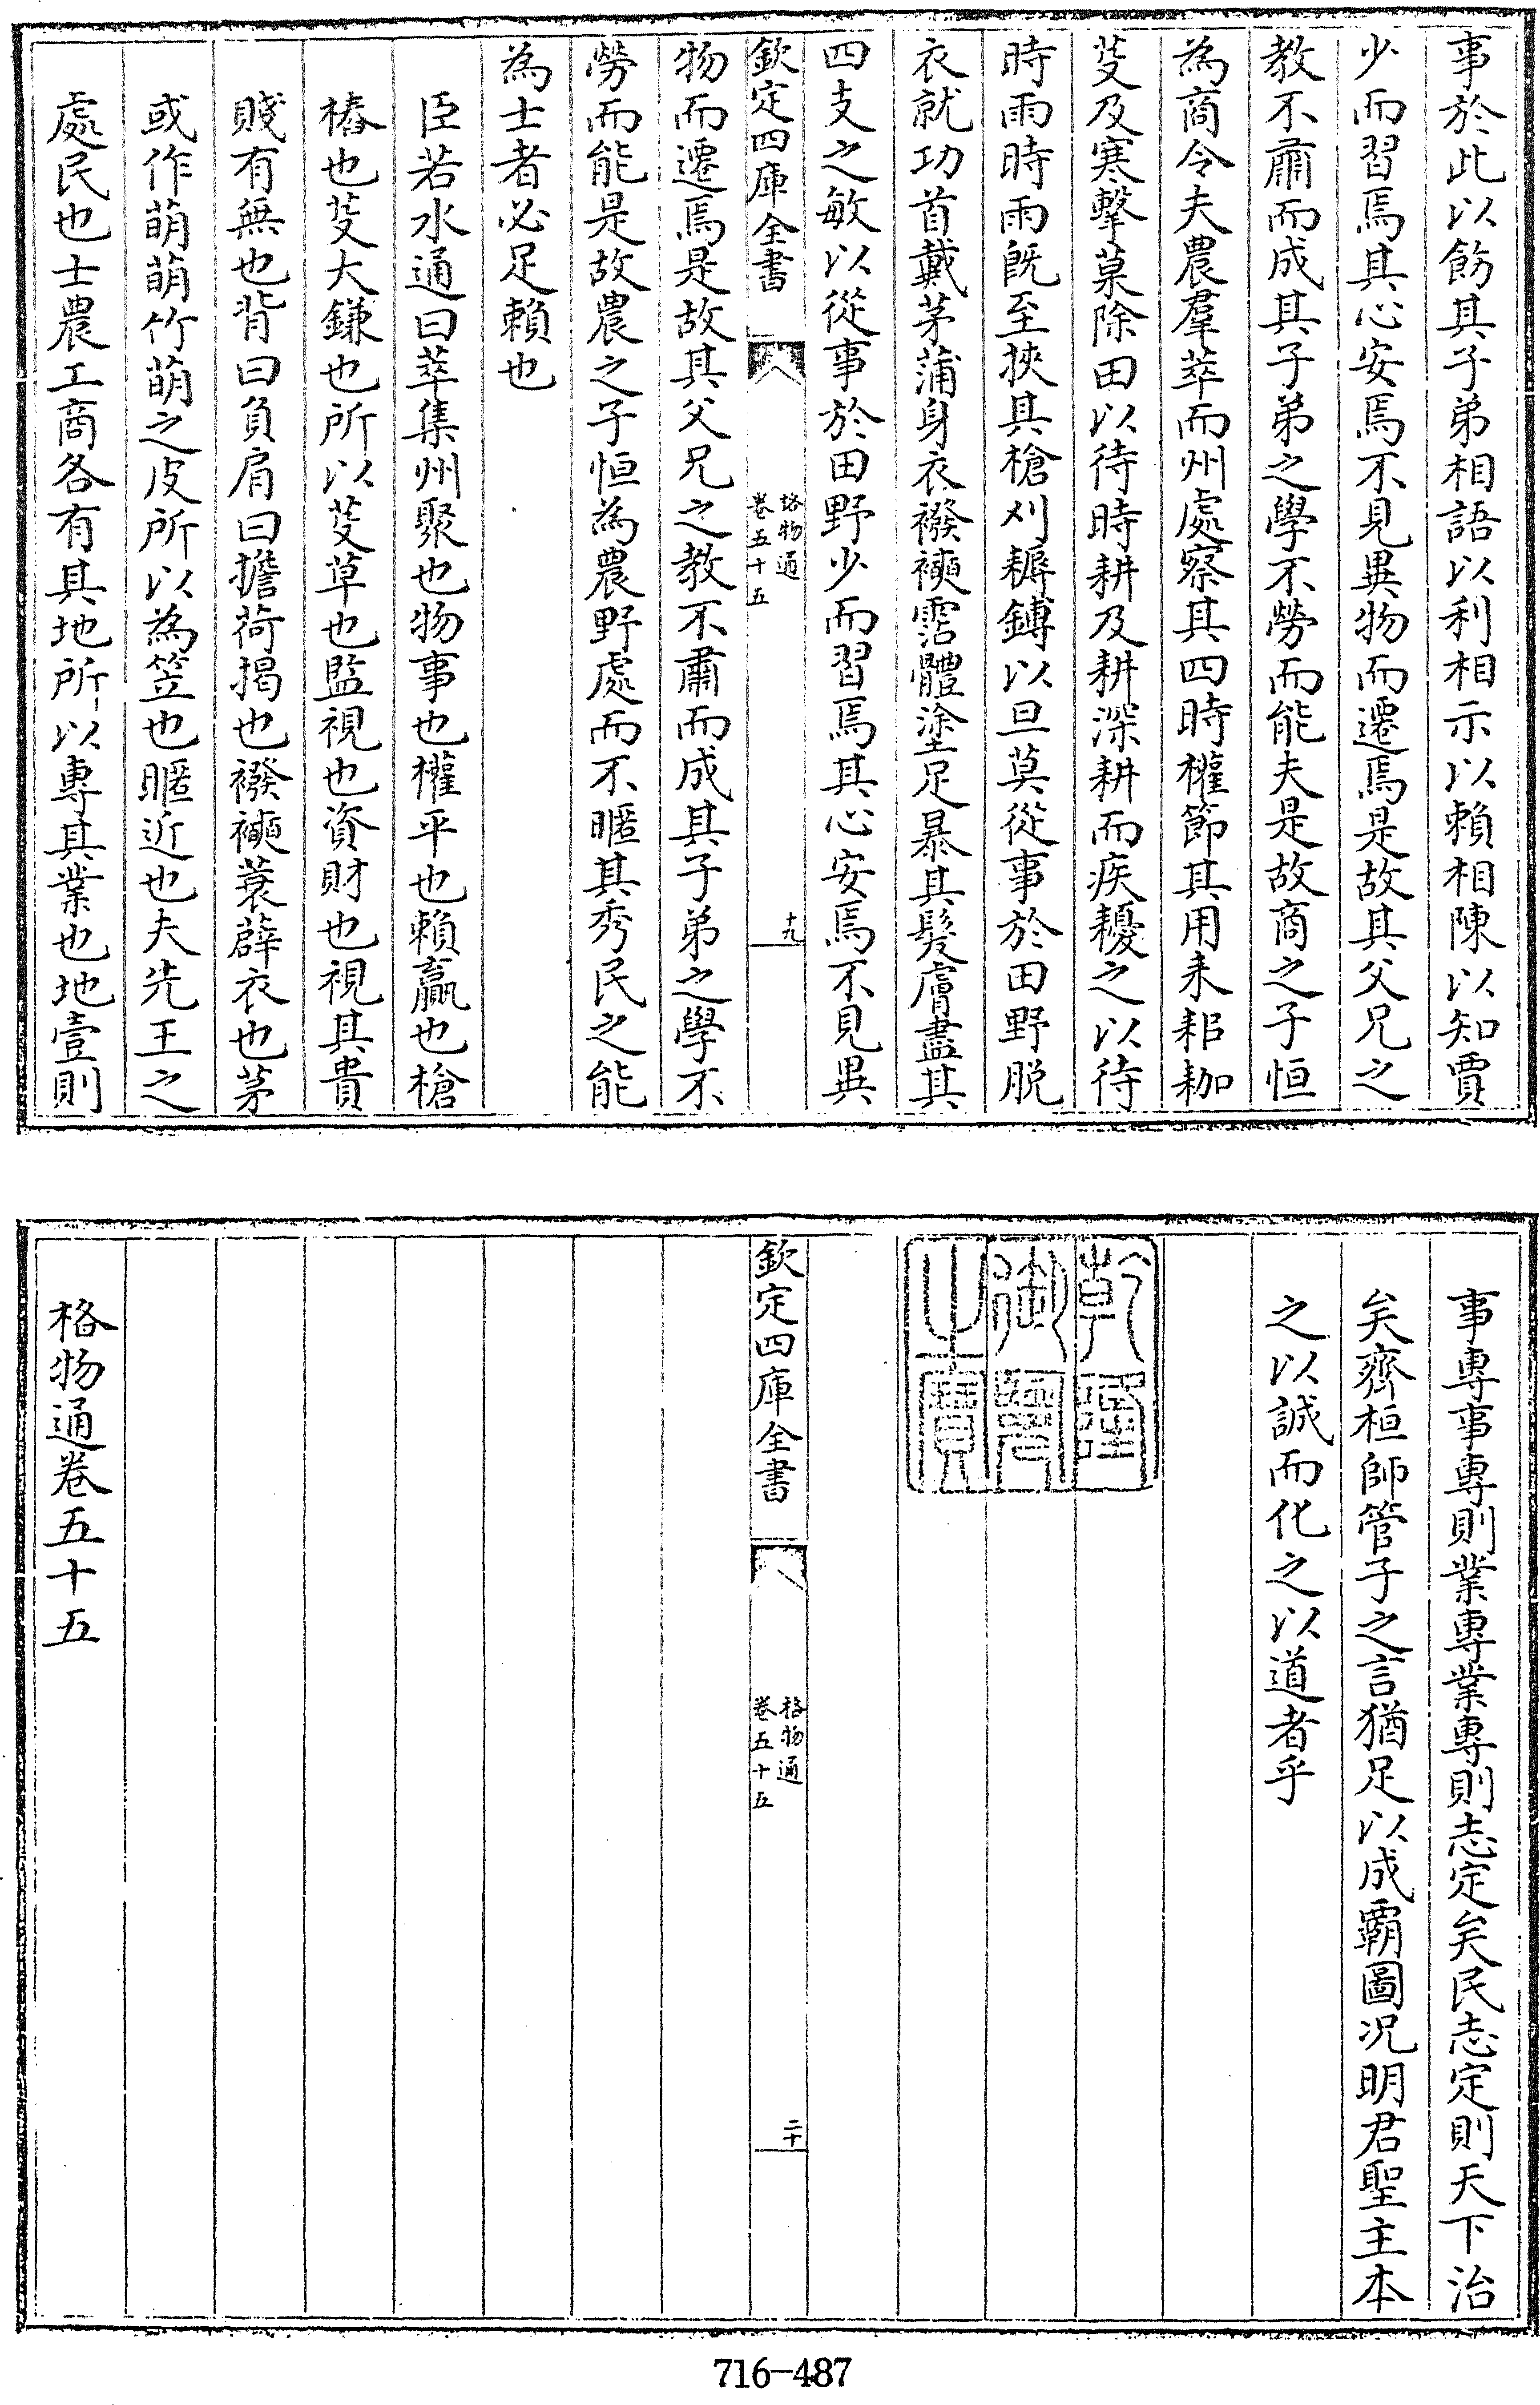 事於此以飭其子弟相語以利相示以賴相陳以知賈
少而習焉其心安焉不見異物而遷焉是故其父兄之
教不肅而成其子弟之學不勞而能夫是故商之子恒
為商令夫農羣萃而州處察其四時權節其用耒耜耞
芟及寒擊菒除田以待時耕及耕深耕而疾耰之以待
時雨時雨既至挾其槍刈耨鎛以旦莫從事於田野脫
衣就功首戴茅蒲身衣襏襫霑體塗足暴其髮膚盡其
四支之敏以從事於田野少而習焉其心安焉不見異
欽定四庫全書
格物通
卷五十五
十九
物而遷焉是故其父兄之教不肅而成其子弟之學不
勞而能是故農之子恒為農野處而不暱其秀民之能
為士者必足賴也
臣若水通曰萃集州聚也物事也權平也賴贏也槍
樁也芟大鎌也所以芟草也監視也資財也視其貴
賤有無也背曰負肩曰擔荷揭也襏襫蓑薜衣也茅
或作萌萌竹萌之皮所以為笠也暱近也夫先王之
處民也士農工商各有其地所以專其業也地壹則
事專事專則業專業專則志定矣民志定則天下治
矣齊桓師管子之言猶足以成霸圖況明君聖主本
之以誠而化之以道者乎
乾隆
御覽
之寶
欽定四庫全書
格物通
卷五十五
二十
格物通卷五十五
716-487